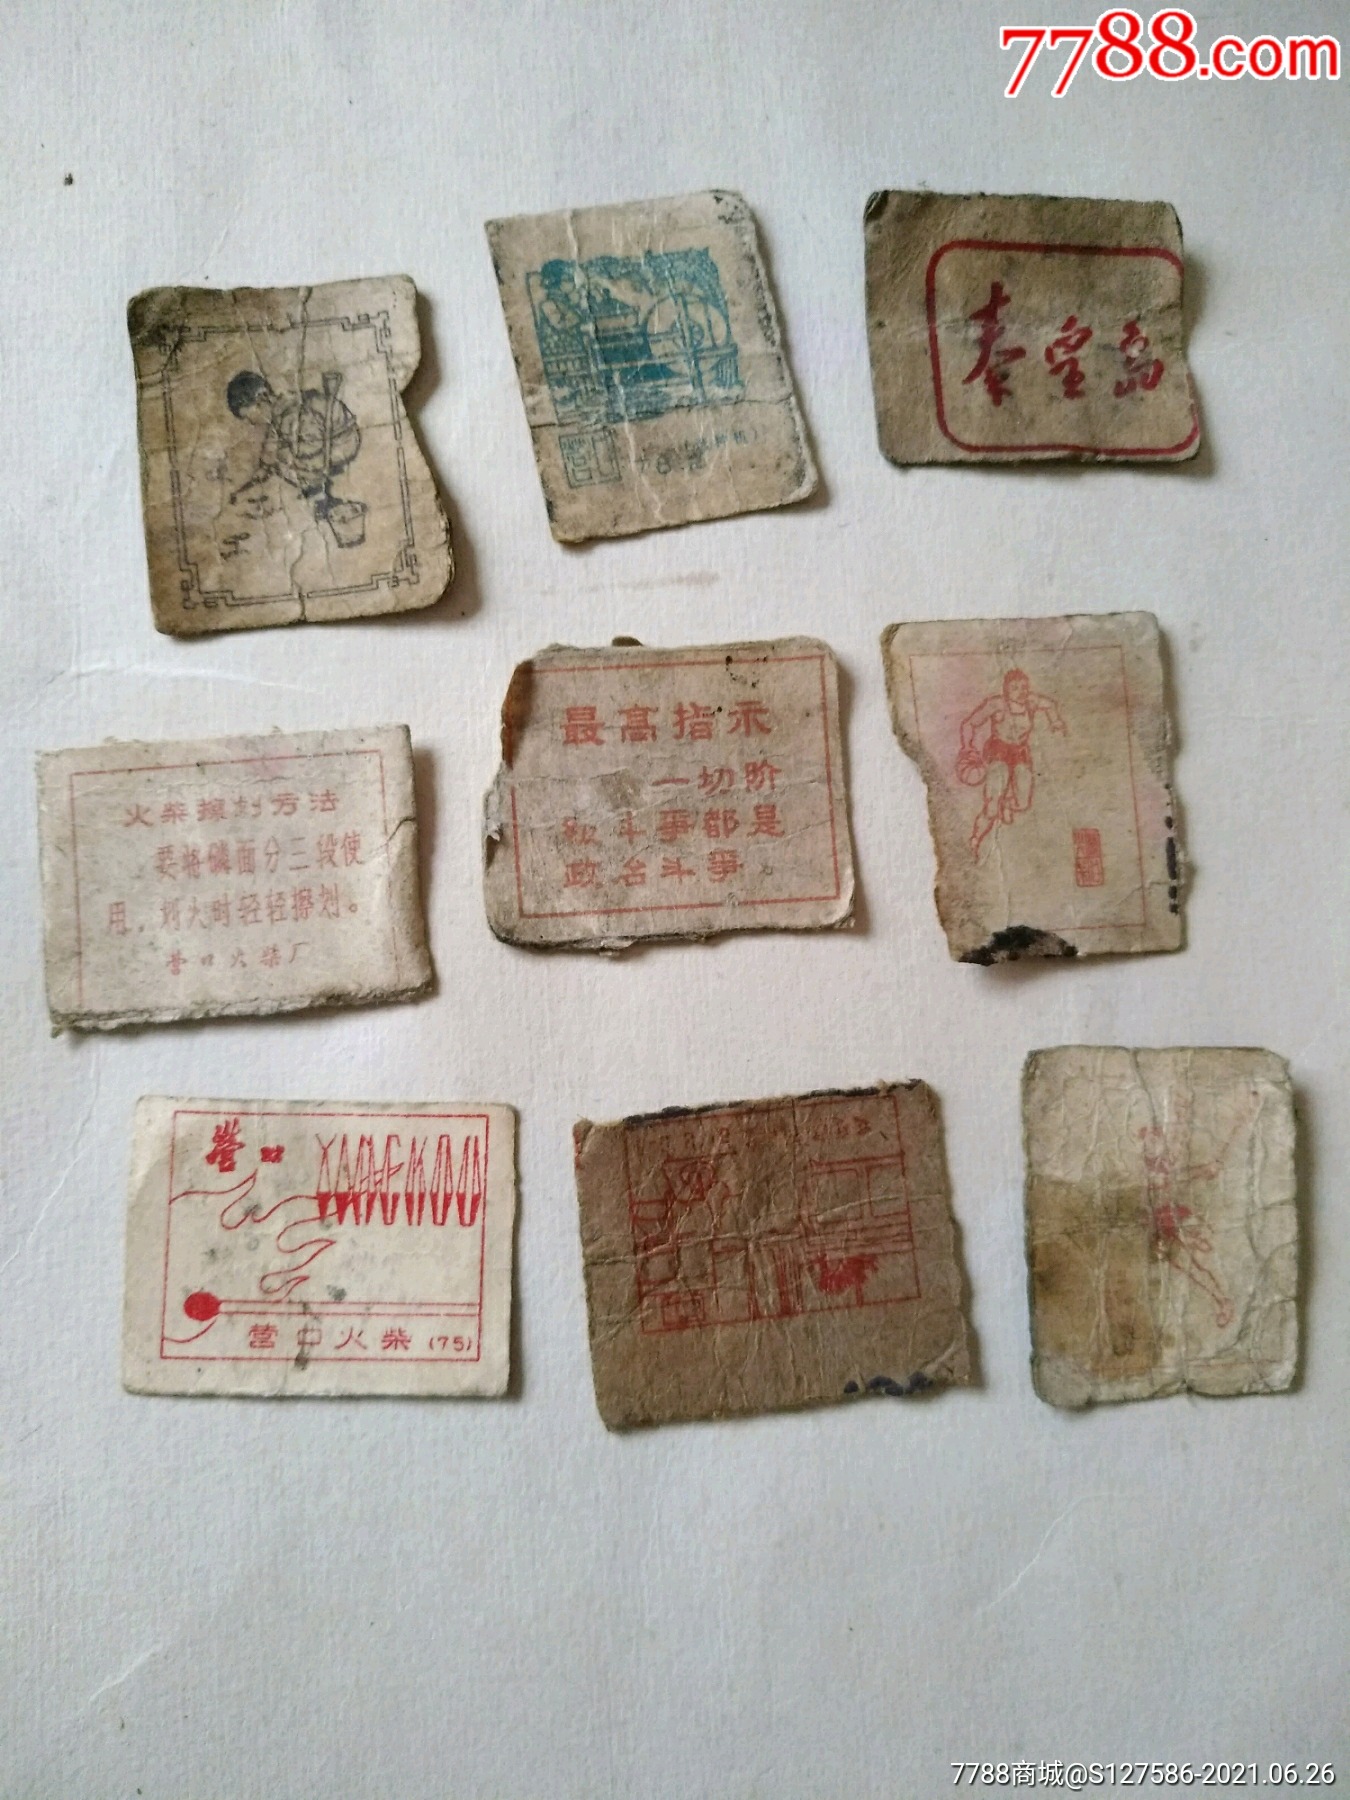 7788.com
秦皇岛
火柴擦划方法
要将磷面分三段使
用，划火时轻轻擦划。
营口火柴厂
最高指示
一切阶
级斗争都是
政治斗争。
营口
YINGKOU
营口火柴(75)
7788商城@S127586-2021.06.26